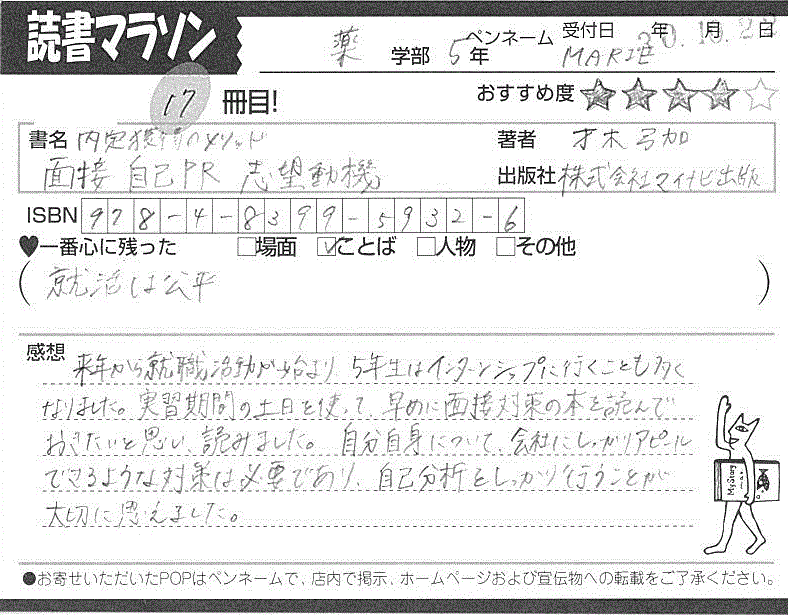 読書マラソン
薬 学部 5年 ペンネーム MARIE 受付日 年 月 日
30.10.22
17 冊目! おすすめ度
書名 内定獲得のメソッド
面接 自己PR 志望動機
著者 才木弓加
出版社 株式会社マイナビ出版
ISBN 978-4-8399-5932-6
♥一番心に残った □場面 ☑ことば □人物 □その他
(就活は公平)
感想 来年から就職活動が始まり、5年生はインターンシップに行くことも多く
なりました。実習期間の土日を使って、早めに面接対策の本を読んで
おきたいと思い、読みました。自分自身について、会社にしっかりアピール
できるような対策は必要であり、自己分析をしっかり行うことが
大切に思えました。
My Story
●お寄せいただいたPOPはペンネームで、店内で掲示、ホームページおよび宣伝物への転載をご了承ください。